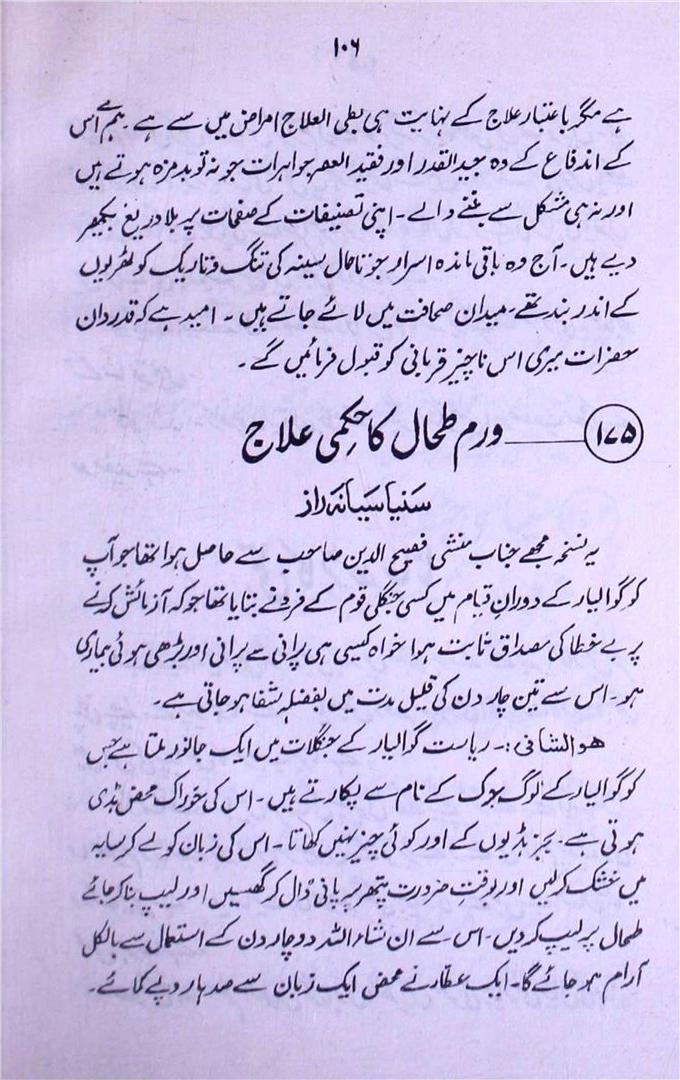 ۱۰۶
ہے مگر باعتبار علاج کے نہایت ہی بطی العلاج امراض میں سے ہے۔ ہم نے اس
کے اندفاع کے وہ جید القدر اور فقید العصر جواہرات جو نہ تو بدمزہ ہوتے ہیں
اور نہ ہی مشکل سے بننے والے۔ اپنی تصنیفات کے صفحات پر بلا دریغ بکھیر
دیے ہیں۔ آج وہ باقی ماندہ اسرار جو تاحال سینہ کی تنگ و تاریک کوٹھریوں
کے اندر بند تھے۔ میدان صحافت میں لائے جاتے ہیں۔ امید ہے کہ قدردان
حضرات میری اس ناچیز قربانی کو قبول فرمائیں گے۔
۱۷۵ ورم طحال کا حکمی علاج
سنیاسیانہ راز
یہ نسخہ مجھے جناب منشی فصیح الدین صاحب سے حاصل ہوا تھا جو آپ
کو گوالیار کے دوران قیام میں کسی جنگلی قوم کے فرد نے بتایا تھا جو کہ آزمائش کرنے
پر بے خطا کی مصداق ثابت ہوا خواہ کیسی ہی پرانی سے پرانی اور بڑھی ہوئی بیماری
ہو۔ اس سے تین چار دن کی قلیل مدت میں بفضلہ شفا ہو جاتی ہے۔
ھوالشافی:۔ ریاست گوالیار کے جنگلات میں ایک جانور ملتا ہے جس
کو گوالیار کے لوگ بوک کے نام سے پکارتے ہیں۔ اس کی خوراک محض ہڈی
ہوتی ہے۔ بجز ہڈیوں کے اور کوئی چیز نہیں کھاتا۔ اس کی زبان کو لے کر سایہ
میں خشک کر لیں اور بوقت ضرورت پتھر پر پانی ڈال کر گھسیں اور لیپ بنا کر جائے
طحال پر لیپ کر دیں۔ اس سے ان شاء اللہ دو چار دن کے استعمال سے بالکل
آرام ہو جائے گا۔ ایک عطار نے محض ایک زبان سے صد ہا روپے کمائے۔